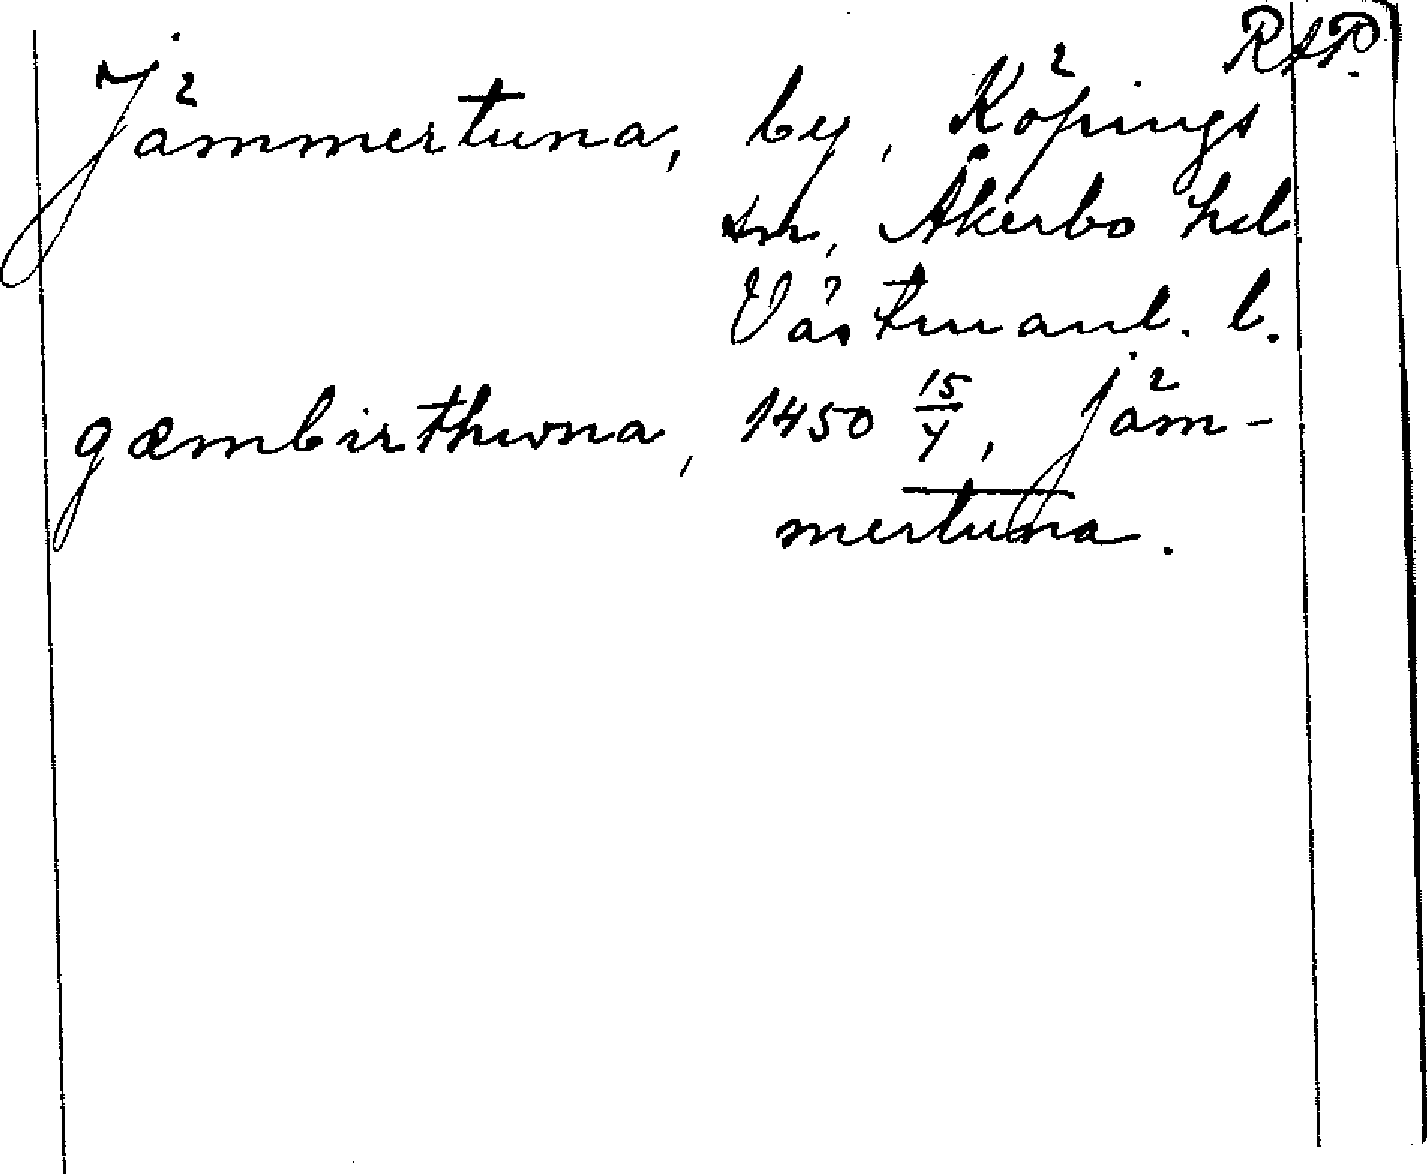 RAP.
Jämmertuna, by, Köpings
sn, Åkerbo hd
Västmanl. l.
gæmbirthwna, 1450 15/4, Jäm-
mertuna.